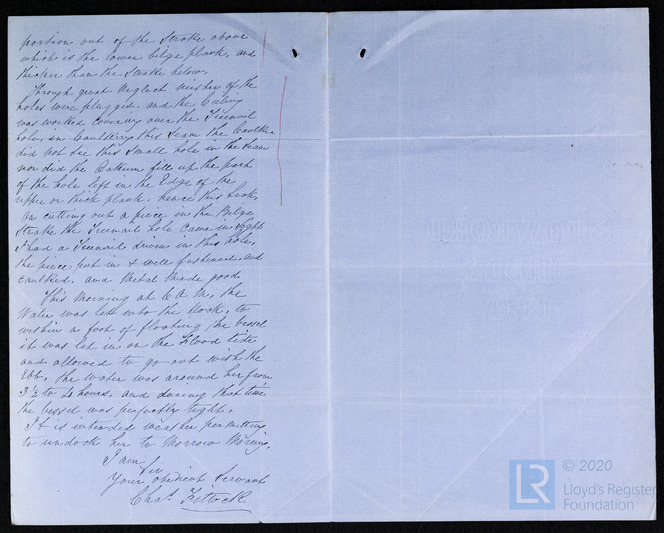 portion out of the Strake above
which is the lower bilge plank, and
thicker than the Strake below.
Through great neglect neither of the
holes were plugged, and the Ceiling
was worked covering over the Treenail
hole, in Caulking this Seam the Caulker
did not see this small hole in the Seam
nor did the Oakum fill up the part
of the hole left in the Edge of the
upper or thick plank, hence this leak,
On cutting out a piece in the Bilge
Strake the Treenail hole came in sight
I had a Treenail driven in this hole,
the piece put in & well fastened, and
caulked, and Metal made good
This Morning at 6 A M, the
Water was let into the Dock, to
within a foot of floating the vessel
it was let in on the Flood tide,
and allowed to go out with the
Ebb, the water was around her from
3½ to 4 hours, and during that time
the vessel was perfectly tight.
It is intended weather permitting
to undock her to Morrow Morning.
I am
Sir
Your obedient Servant
Chas. Fittock
LR © 2020
Lloyd's Register
Foundation